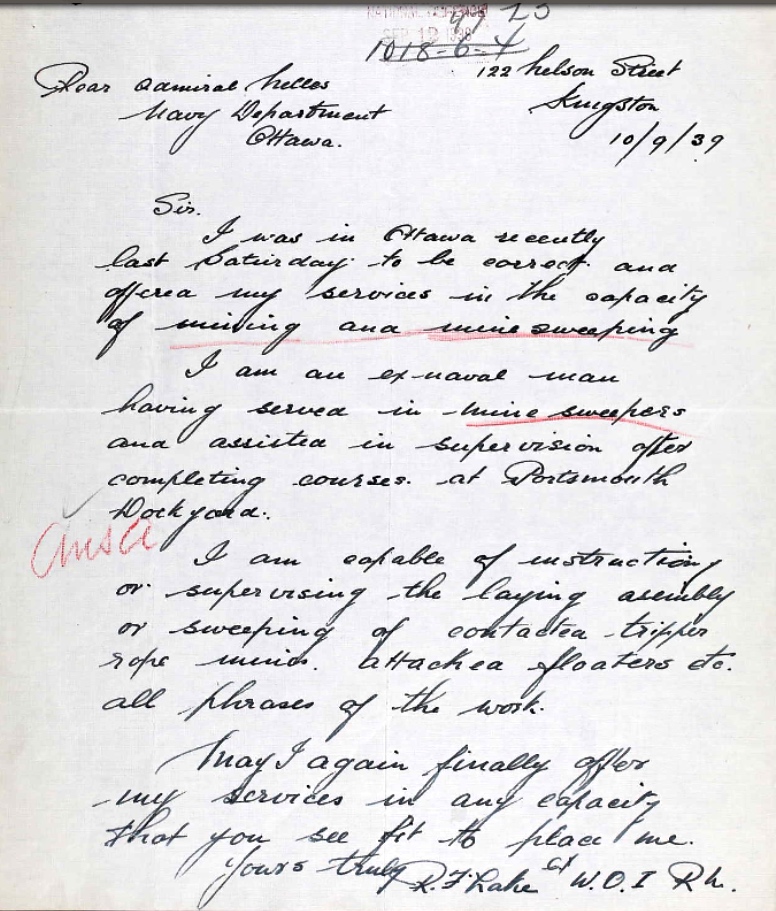 NATIONAL DEFENCE
SEP 12 1939
1018-6-4
122 Nelson Street
Dear Admiral Nelles
Kingston
Navy Department
Ottawa.
10/9/39
Sir.
I was in Ottawa recently
last Saturday to be correct and
offered my services in the capacity
of mining and mine sweeping
I am an ex-naval man
having served in mine sweepers
and assisted in supervision after
completing courses. at Portsmouth
Dockyard.
Ansd
I am capable of instructiong
or supervising the laying asembly
or sweeping of contacted tripper
rope mines. attacked floaters etc.
all phrases of the work.
May I again finally offer
my services in any capacity
that you see fit to place me.
Yours truly R.F. Lake ex W.O.I R.N.